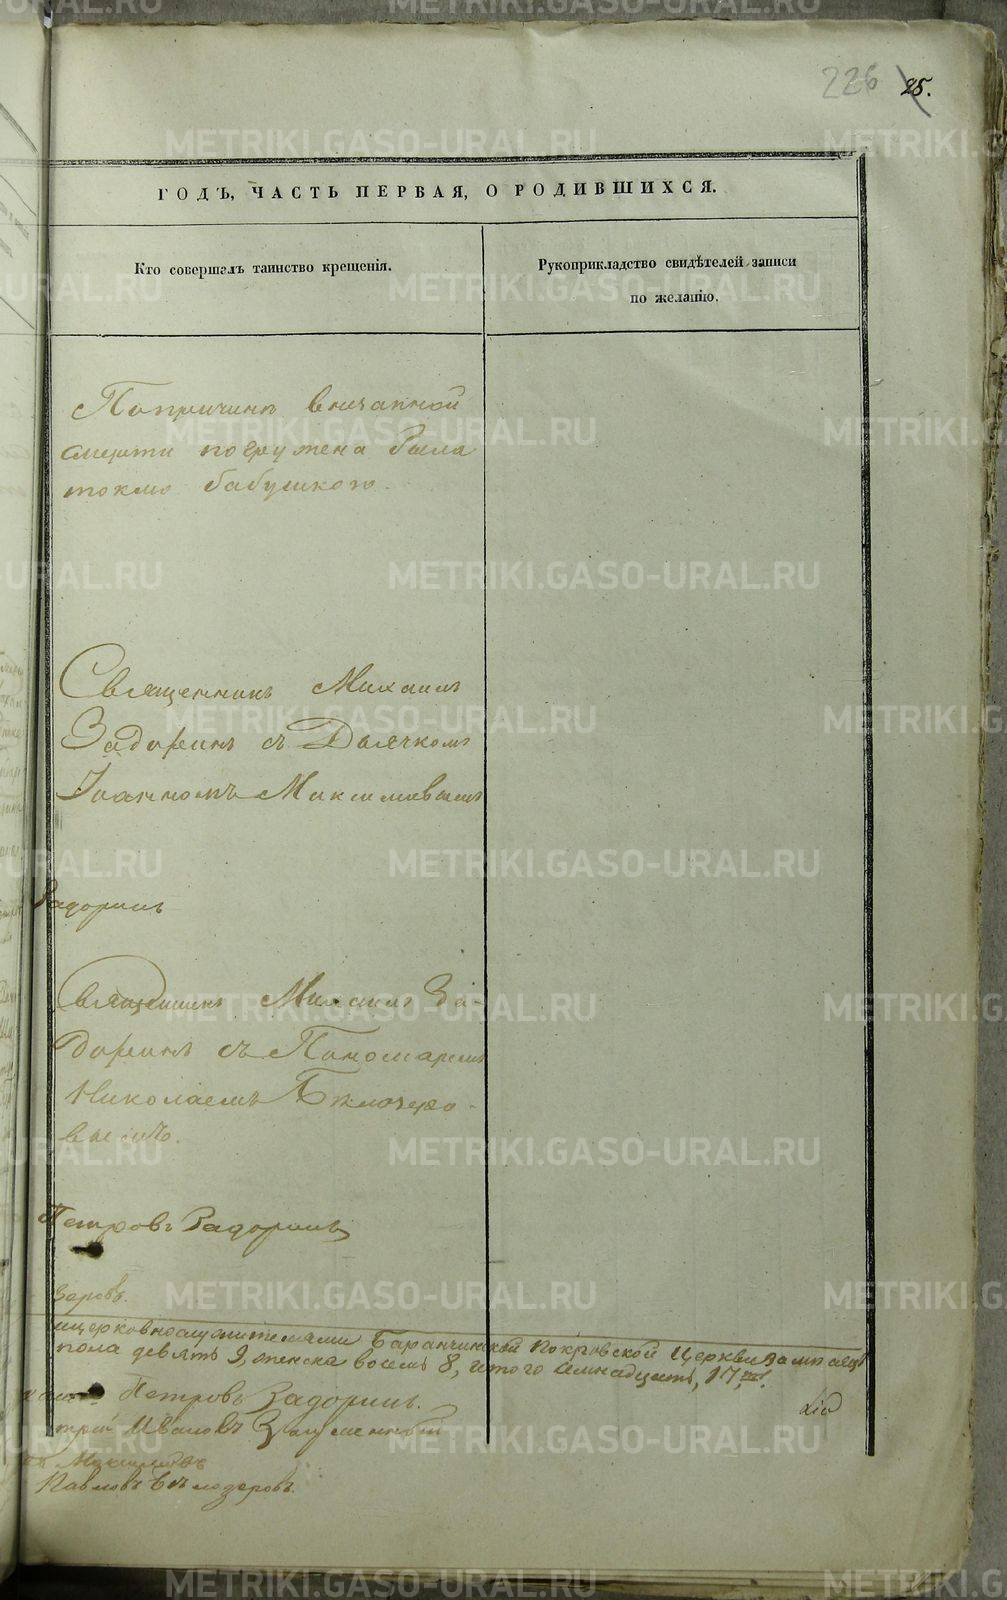 226 25.
ГОДЪ, ЧАСТЬ ПЕРВАЯ, О РОДИВШИХСЯ.
Кто совершалъ таинство крещенія.
Рукоприкладство свидѣтелей записи
по желанію.
По причинѣ внезапной
смерти погружена была
токмо бабушкою.
Священникъ Михаилъ
Задоринъ съ Дьячкомъ
Іоанномъ
Задоринъ
Священникъ Михаилъ За-
доринъ съ Пономаремъ
Николаемъ Бѣлозеро-
вымъ.
Петровъ Задоринъ
зеровъ.
церковнослужителями Баранчинской Покровской Церкви записано
пола девять 9, женска восемь 8, итого семнадцать, 17
Петровъ Задоринъ.
Ивановъ
Павловъ Бѣлозеровъ.
METRIKI.GASO-URAL.RU